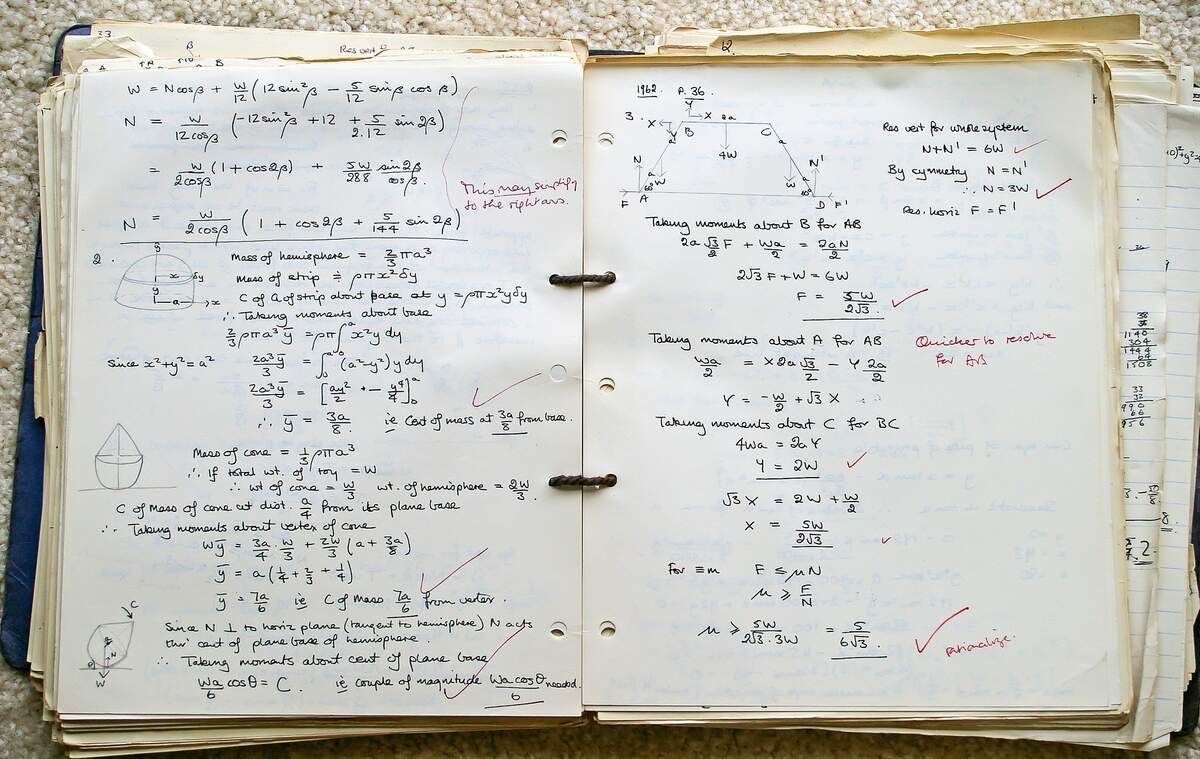 33
W = Ncosβ + W/12 (12sin²β − 5/12 sinβ cosβ)
N = W/12cosβ (−12sin²β + 12 + 5/2.12 sin2β)
= W/2cosβ (1 + cos2β) + 5W/288 sin2β/cosβ.
This may simplify
to the right ans.
N = W/2cosβ (1 + cos2β + 5/144 sin2β)
2.
Mass of hemisphere = 2/3 πa³
Mass of strip ≑ ρπx²δy
C of G of strip about base at y = ρπx²yδy
∴ Taking moments about base
2/3 ρπa³ȳ = ρπ∫₀ᵃ x²y dy
since x²+y² = a² 2a³ȳ/3 = ∫₀ᵃ (a²−y²) y dy
2a³ȳ/3 = [ay²/2 − y⁴/4]₀ᵃ
∴ ȳ = 3a/8. ie Cent of mass at 3a/8 from base.
Mass of cone = 1/3 ρπa³
∴ If total wt. of toy = W
∴ wt of cone = W/3 wt. of hemisphere = 2W/3.
C of Mass of cone at dist. a/4 from its plane base
∴ Taking moments about vertex of cone
Wȳ = 3a/4 . W/3 + 2W/3 (a + 3a/8)
ȳ = a(1/4 + 2/3 + 1/4)
ȳ = 7a/6 ie C of Mass 7a/6 from vertex.
Since N ⊥ to horiz plane (tangent to hemisphere) N acts
thro' cent of plane base of hemisphere.
∴ Taking moments about cent of plane base
Wa/6 cosθ = C. ie couple of magnitude Wa cosθ/6 needed.
1962. P. 36
3.
Y
X X 2a
B C
4W
N N'
W W
60° 60°
F A D F'
Res vert for whole system
N+N' = 6W
By symmetry N = N'
∴ N = 3W
Res. horiz F = F'
Taking moments about B for AB
2a√3/2 F + Wa/2 = 2aN/2
2√3 F + W = 6W
F = 5W/2√3.
Taking moments about A for AB
Quicker to resolve
for AB
Wa/2 = X 2a√3/2 − Y 2a/2
Y = −W/2 + √3 X
Taking moments about C for BC
4Wa = 2aY
Y = 2W
√3 X = 2W + W/2
X = 5W/2√3
For ≡m F ≤ μN
μ ≥ F/N
μ ≥ 5W/2√3.3W = 5/6√3.
rationalize.